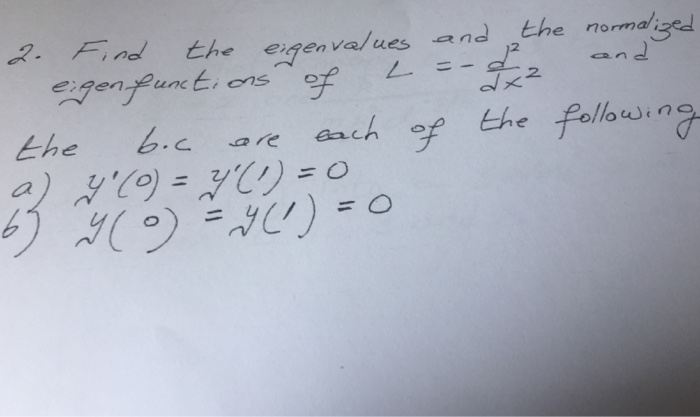 2. Find the eigenvalues and the normalized
eigenfunctions of L = - d²/dx² and
the b.c are each of the following
a) y'(0) = y'(1) = 0
b) y(0) = y(1) = 0